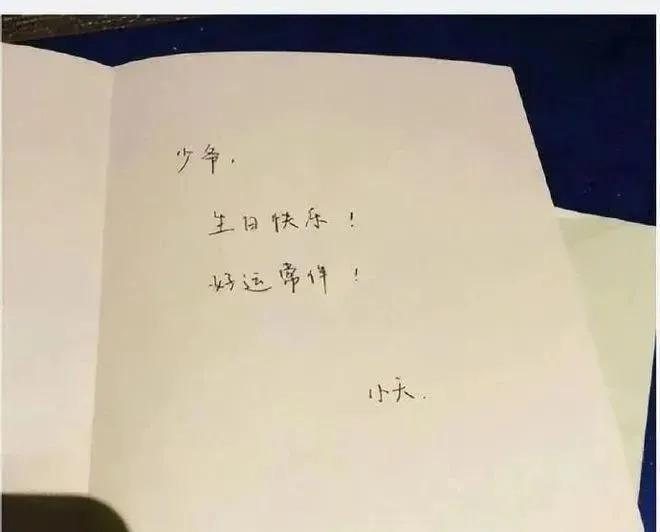 少爷.
生日快乐！
好运常伴！
小天.